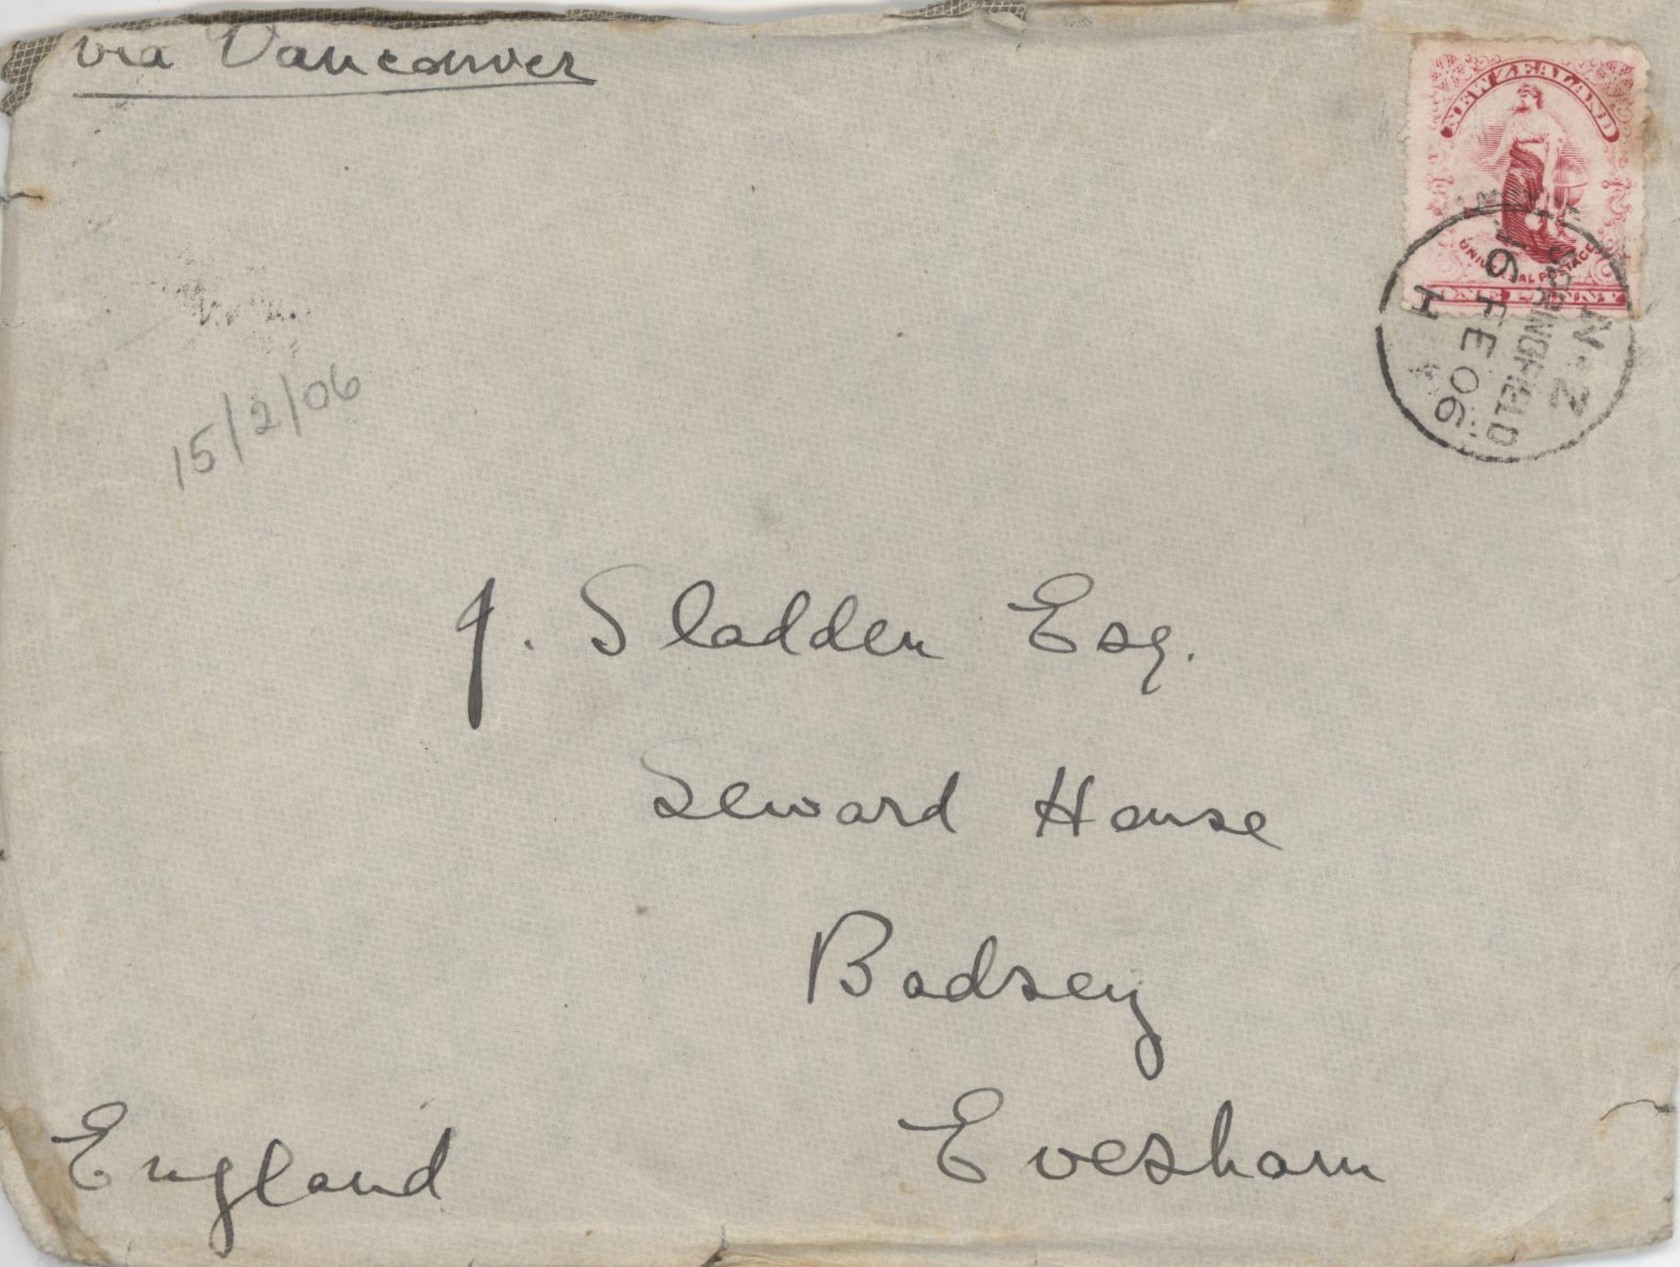 via Vancouver
NEW ZEALAND
UNIVERSAL POSTAGE
ONE PENNY
SPRINGFIELD
N·Z
16 FE 06
H
15/2/06
J. Sladden Esq.
Seward House
Badsey
Evesham
England